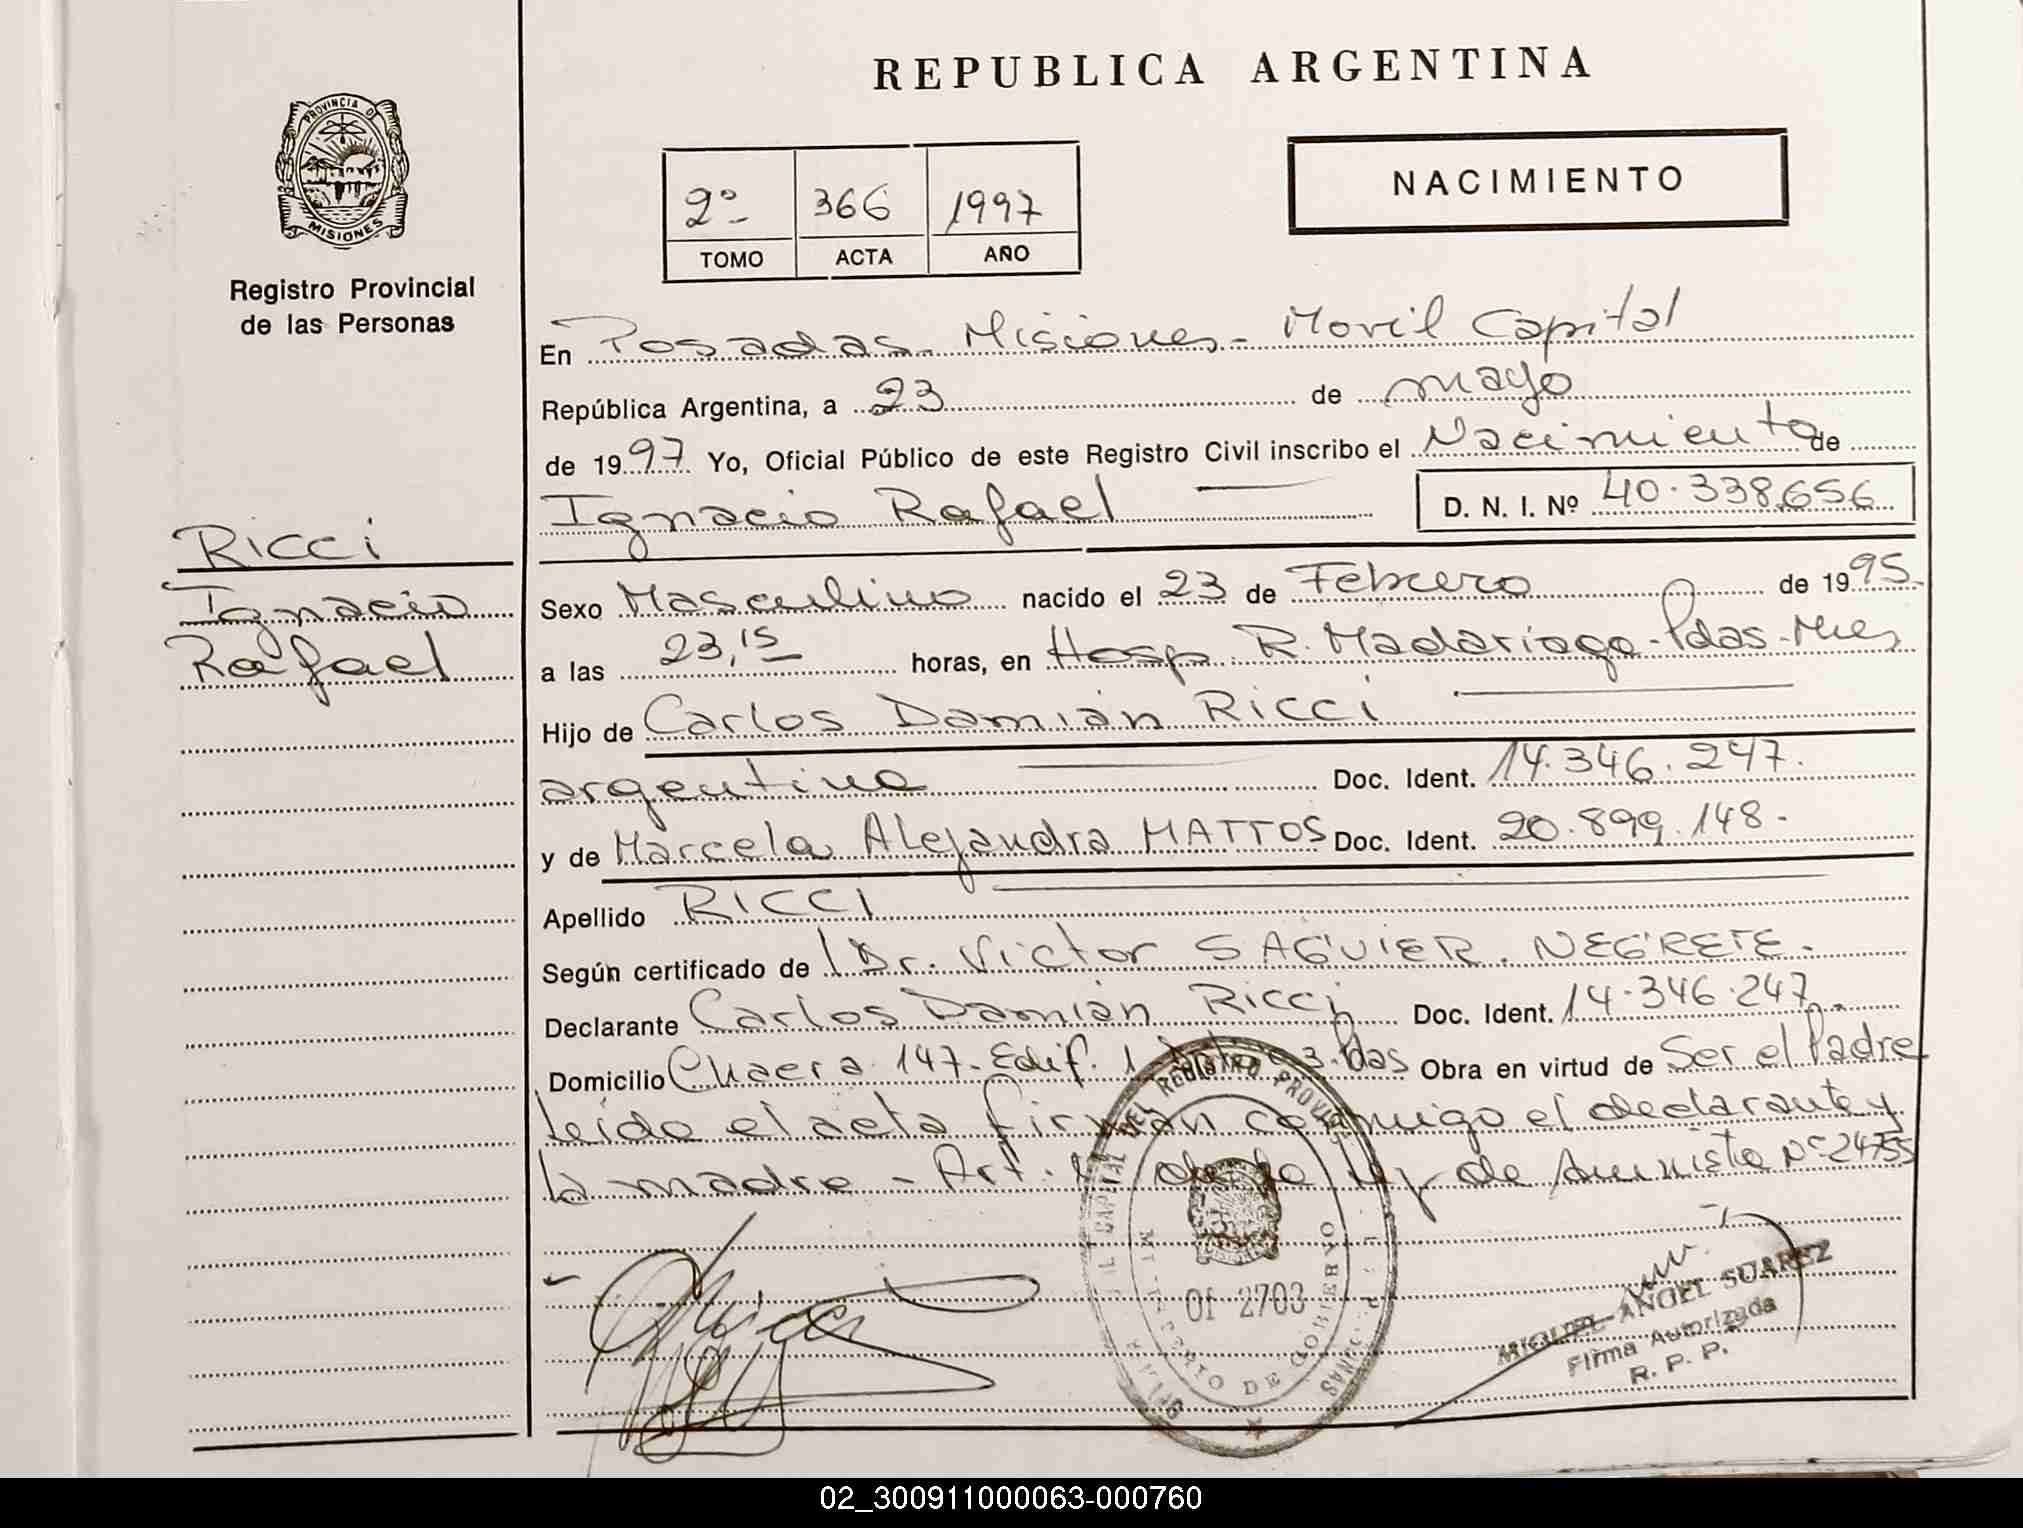 REPUBLICA ARGENTINA
PROVINCIA D
MISIONES
Registro Provincial
de las Personas
2º- 366 1997
TOMO ACTA AÑO
NACIMIENTO
En Posadas- Misiones- Movil Capital
República Argentina, a 23 de mayo
de 1997 Yo, Oficial Público de este Registro Civil inscribo el Nacimiento de
Ignacio Rafael D. N. I. Nº 40.338,656
Ricci
Ignacio
Rafael
Sexo Masculino nacido el 23 de Febrero de 1995
a las 23,15 horas, en Hosp. R. Madariaga-Pdas-Mnes
Hijo de Carlos Damián Ricci
argentino Doc. Ident. 14.346.247.
y de Marcela Alejandra MATTOS Doc. Ident. 20.899.148-
Apellido RICCI
Según certificado de Dr. Victor SAGUIER. NEGRETE.
Declarante Carlos Damián Ricci Doc. Ident. 14.346.247.
Domicilio Chacra 147- Edif. 1 3. Pdas Obra en virtud de Ser el Padre
leído el acta firman conmigo el declarante y
la madre - Art. de la ley de Amnistia Nº 24755
DEL REGISTRO PROVINCIAL
CAPITAL
MINISTERIO DE GOBIERNO
Of 2703
MIGUEL ANGEL SUAREZ
Firma Autorizada
R. P. P.
02_300911000063-000760